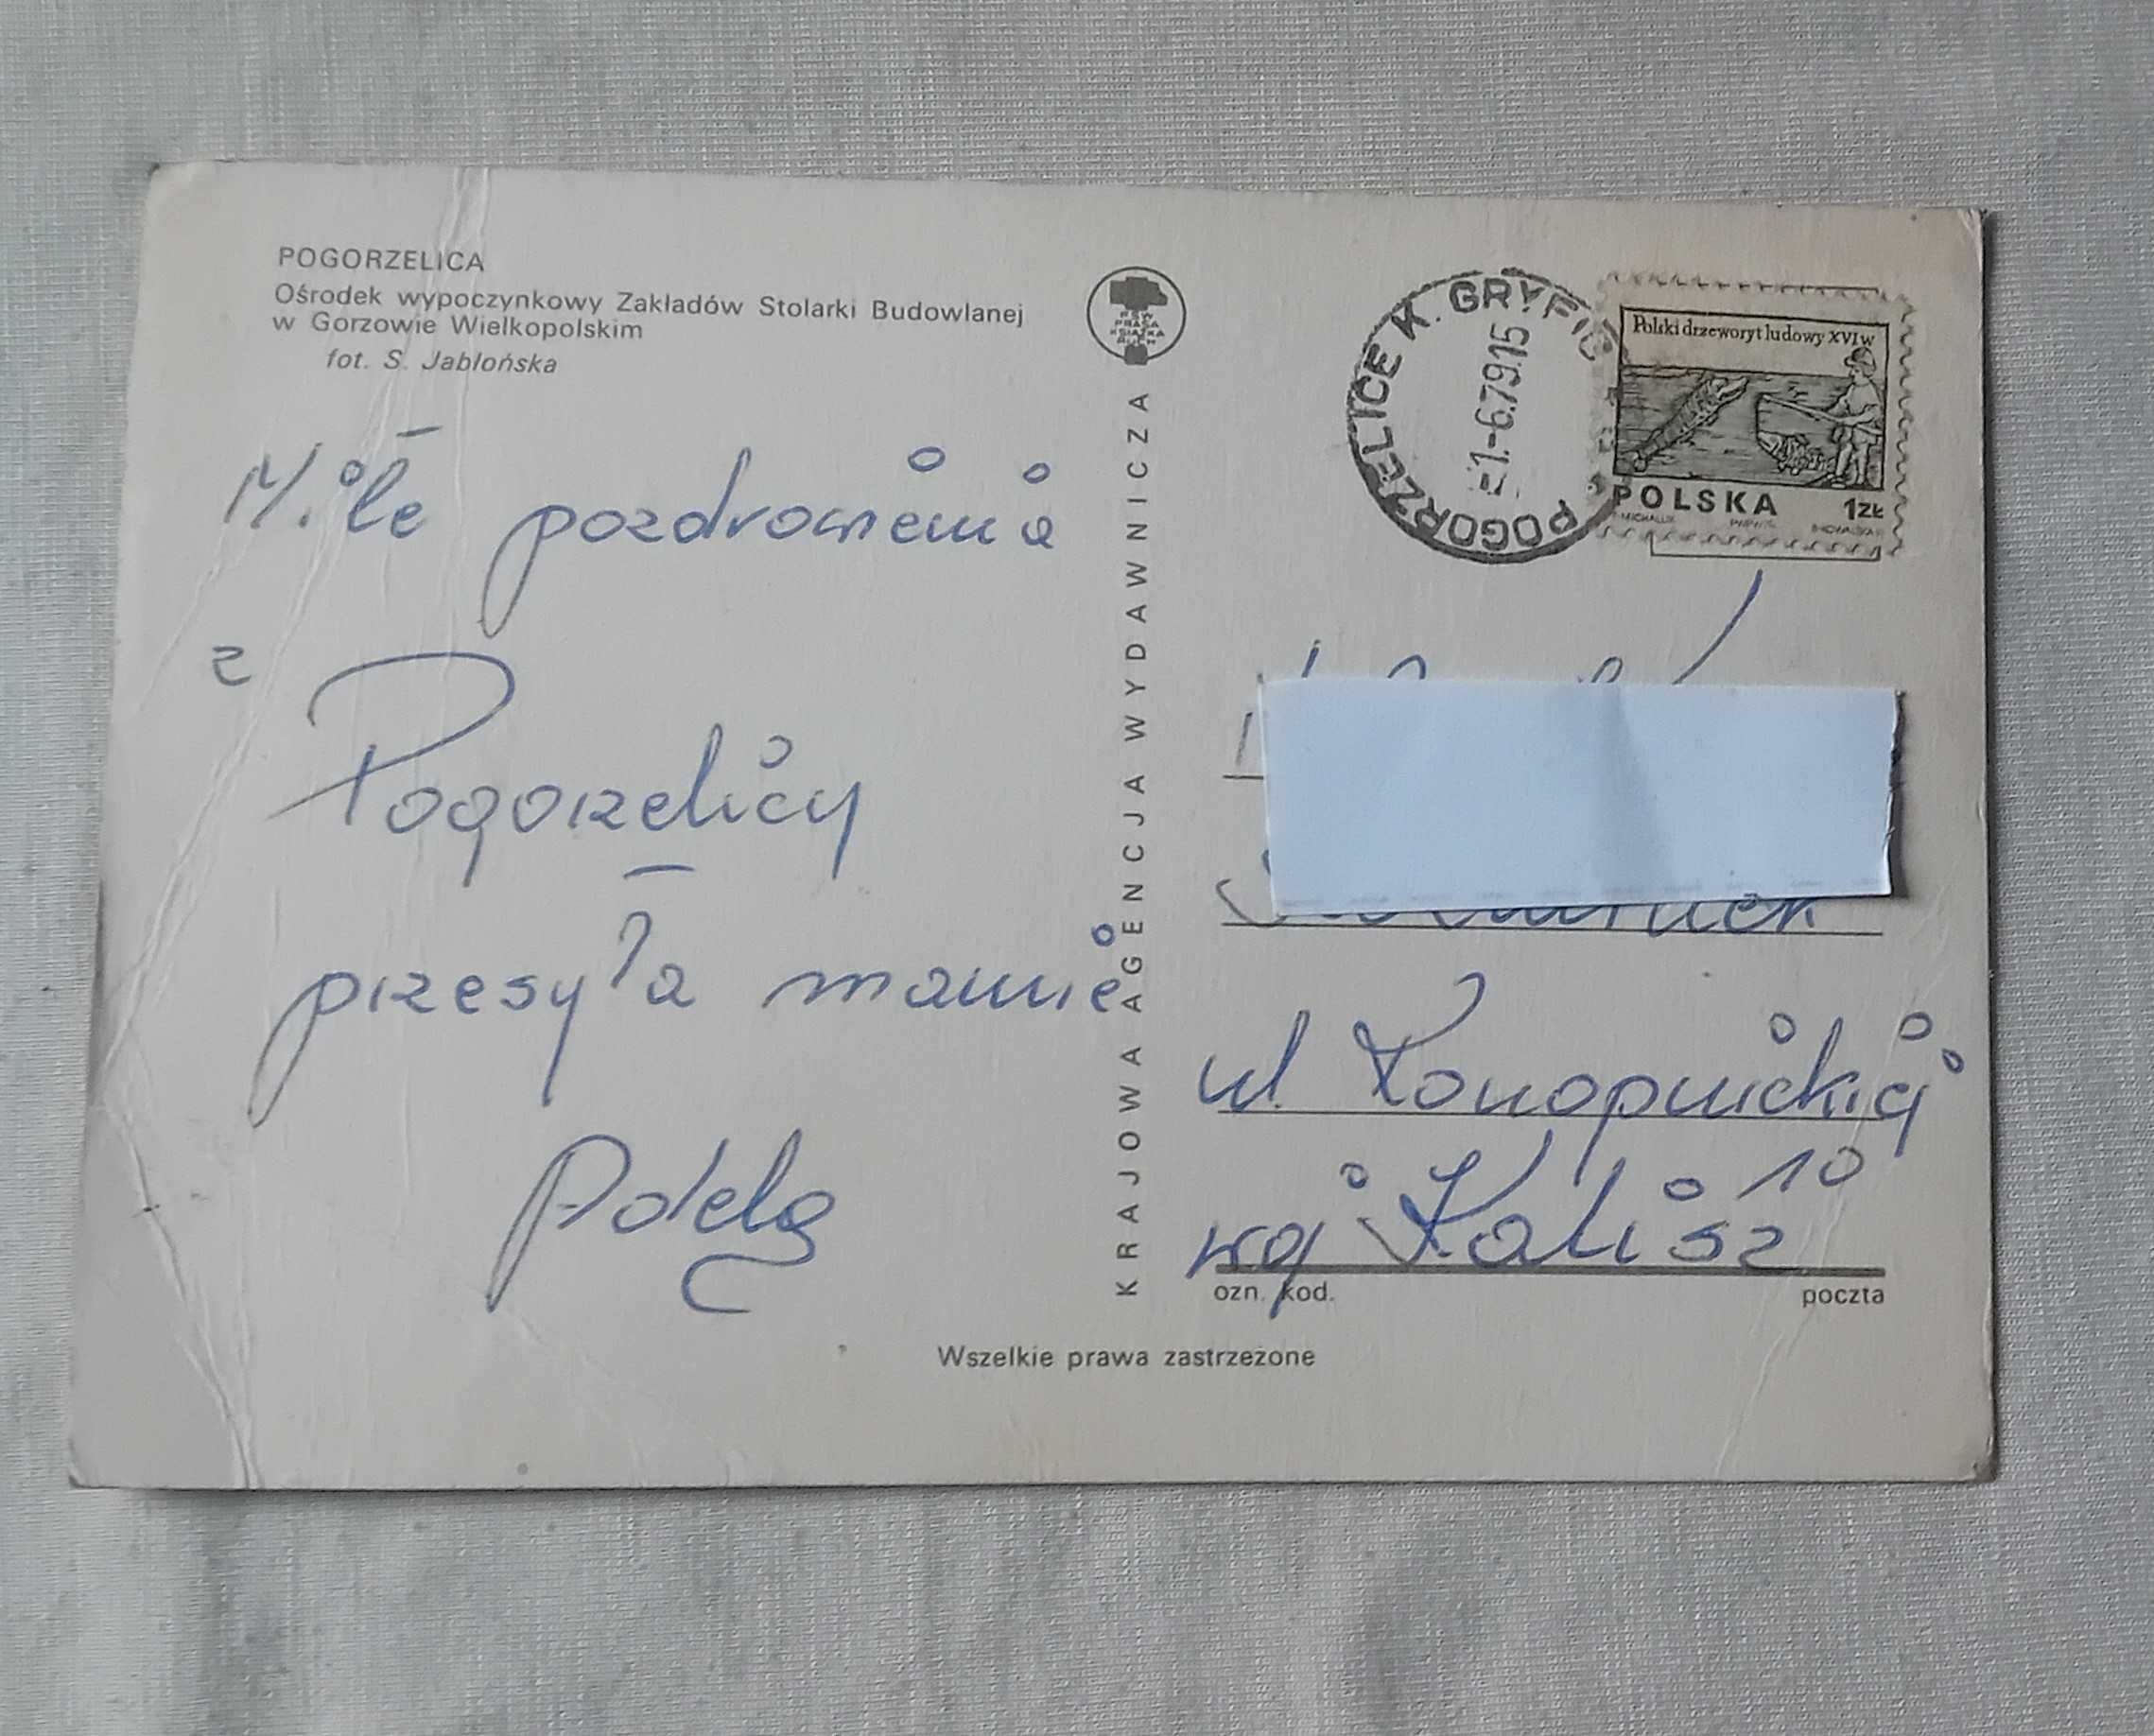 POGORZELICA
Ośrodek wypoczynkowy Zakładów Stolarki Budowlanej
w Gorzowie Wielkopolskim
fot. S. Jabłońska
Miłe pozdrowienia
z
Pogorzelicy
przesyła mamie
KRAJOWA AGENCJA WYDAWNICZA
RSW
PRASA
KSIĄŻKA
RUCH
POGORZELICE K. GRYFIC
-1.-6.79.15
Polski drzeworyt ludowy XVI w
POLSKA 1ZŁ
ul Konopnickiej
10
woj Kalisz
ozn. kod. poczta
Wszelkie prawa zastrzeżone